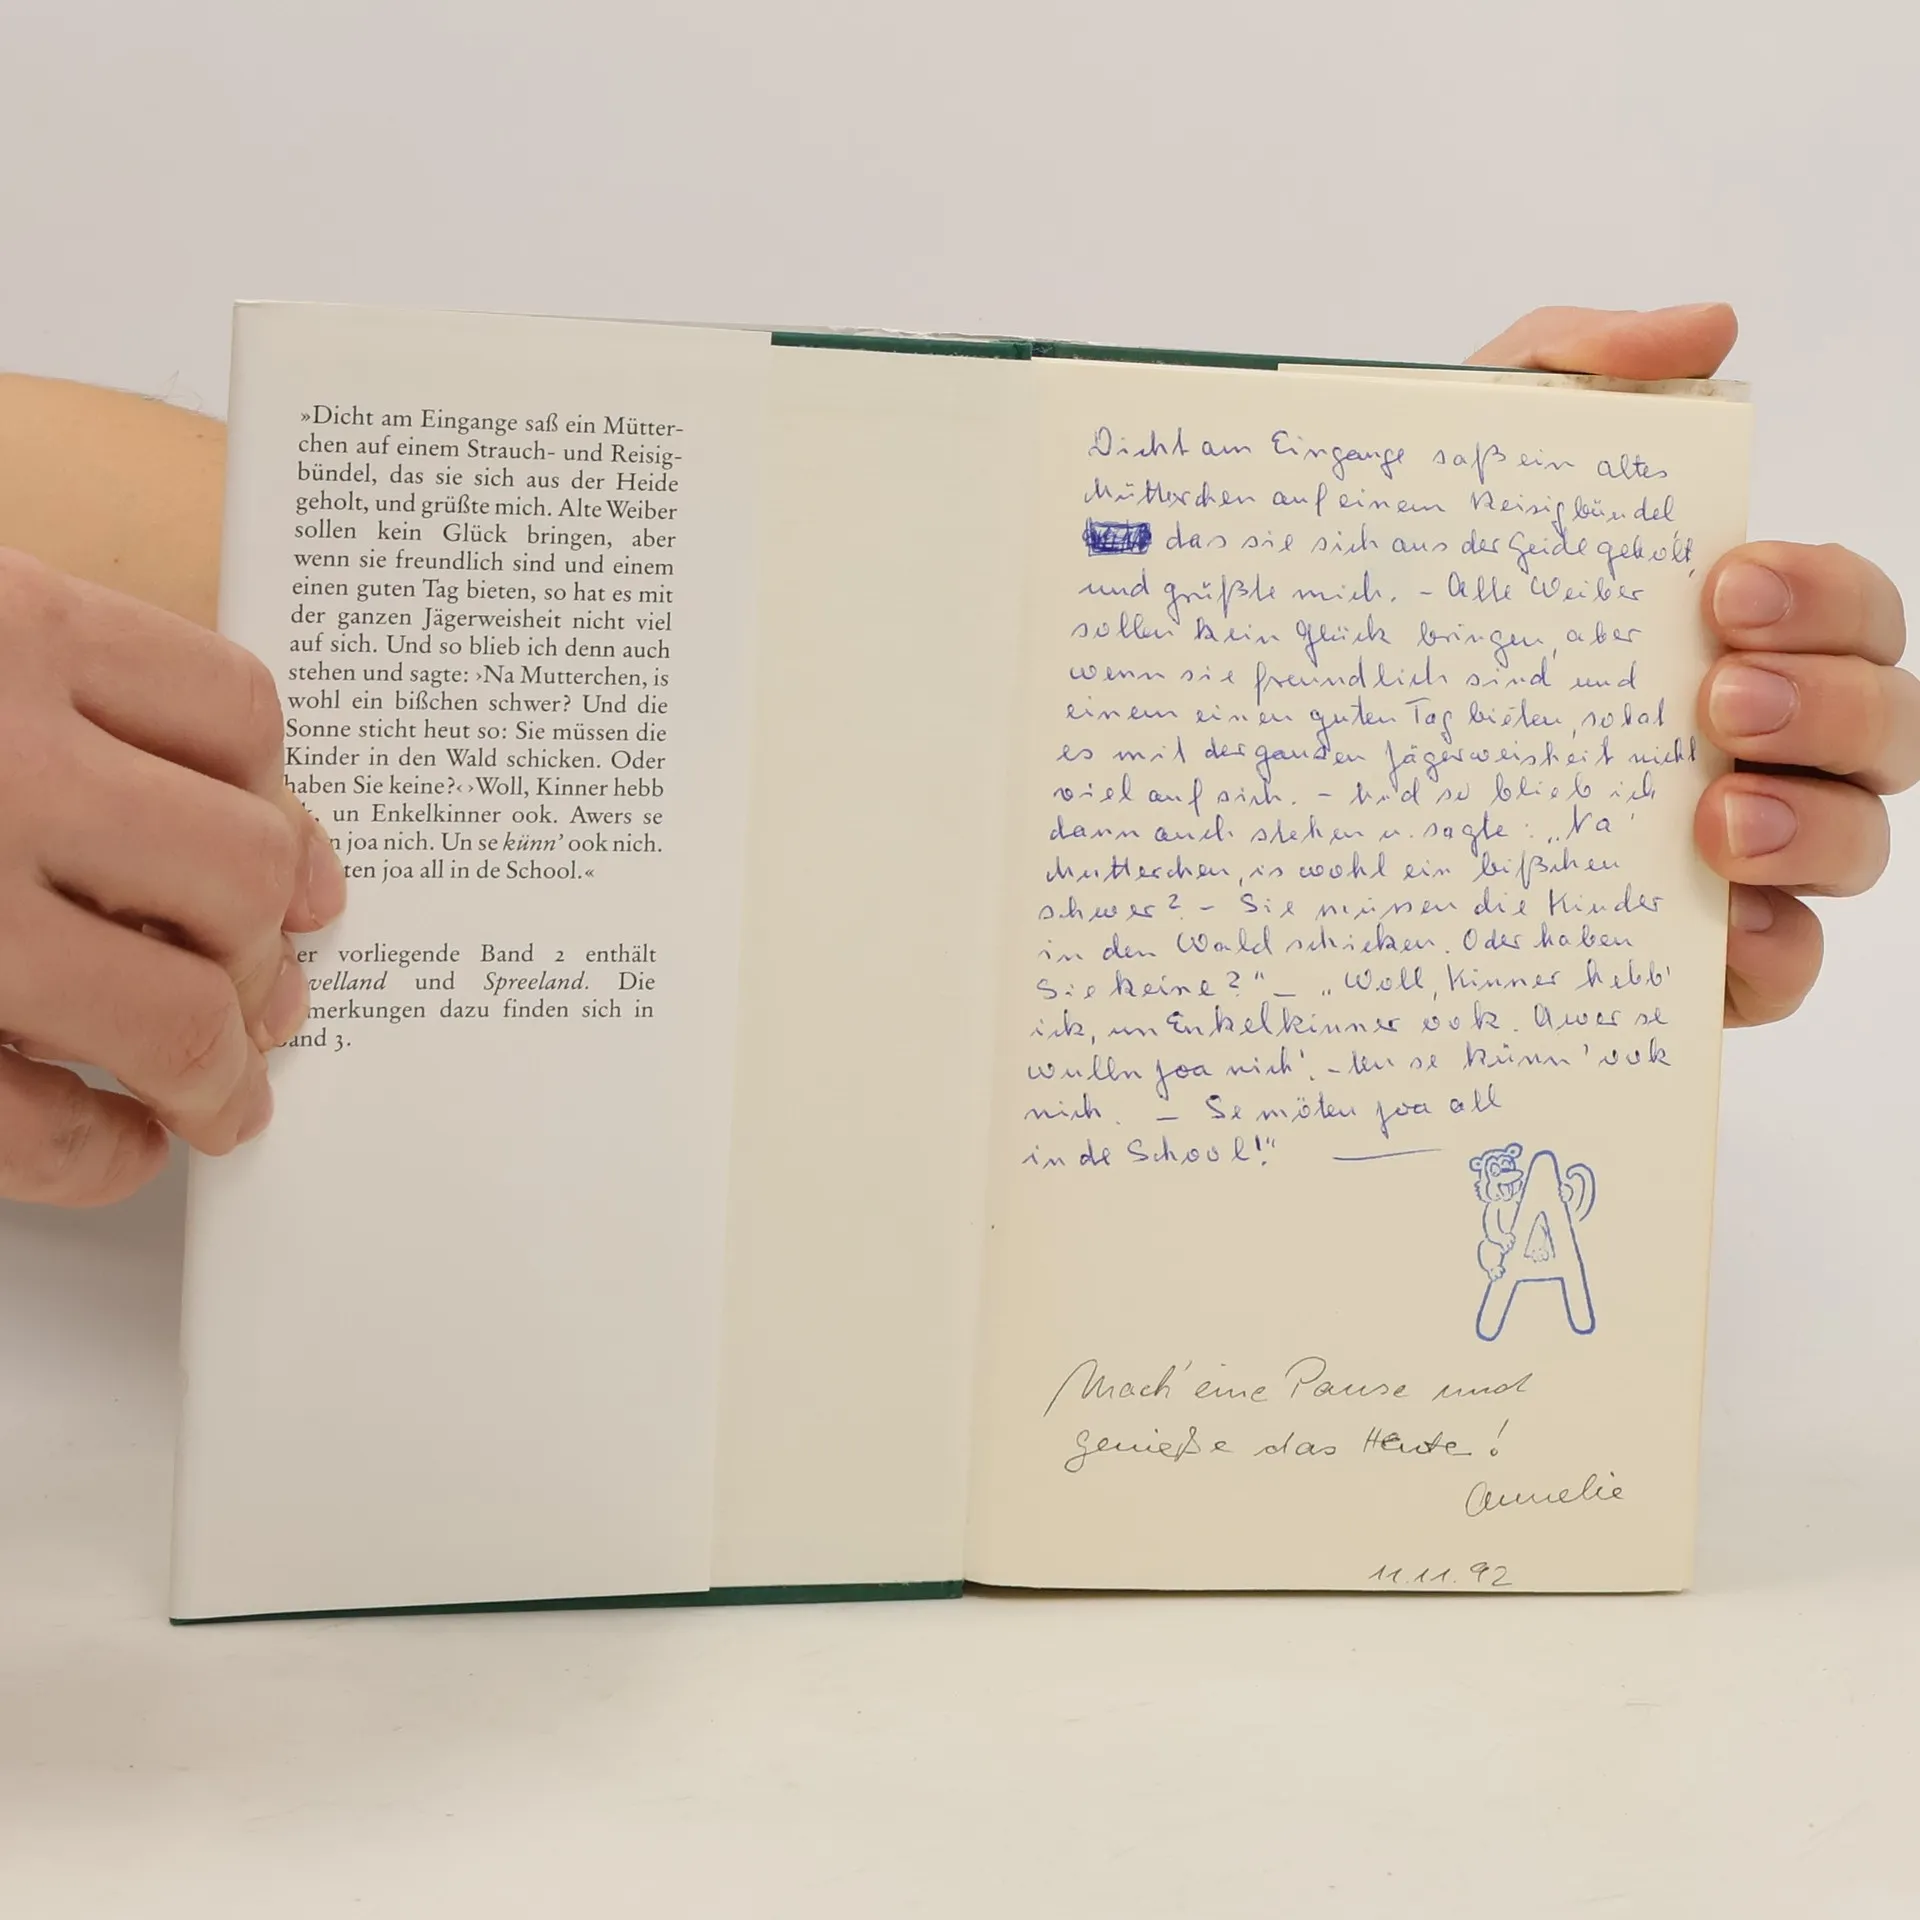 »Dicht am Eingange saß ein Mütter-
chen auf einem Strauch- und Reisig-
bündel, das sie sich aus der Heide
geholt, und grüßte mich. Alte Weiber
sollen kein Glück bringen, aber
wenn sie freundlich sind und einem
einen guten Tag bieten, so hat es mit
der ganzen Jägerweisheit nicht viel
auf sich. Und so blieb ich denn auch
stehen und sagte: ›Na Mutterchen, is
wohl ein bißchen schwer? Und die
Sonne sticht heut so: Sie müssen die
Kinder in den Wald schicken. Oder
haben Sie keine?‹ ›Woll, Kinner hebb
un Enkelkinner ook. Awers se
joa nich. Un se künn' ook nich.
joa all in de School.«
vorliegende Band 2 enthält
und Spreeland. Die
dazu finden sich in
Band 3.
Dicht am Eingange saß ein altes
Mütterchen auf einem Reisigbündel
das sie sich aus der Heide geholt,
und grüßte mich. – Alte Weiber
sollen kein Glück bringen, aber
wenn sie freundlich sind und
einem einen guten Tag bieten, so hat
es mit der ganzen Jägerweisheit nicht
viel auf sich. – Und so blieb ich
dann auch stehen u. sagte: „Na
Mutterchen, is wohl ein bißchen
schwer? – Sie müssen die Kinder
in den Wald schicken. Oder haben
Sie keine?" – „Woll, Kinner hebb'
ick, un Enkelkinner ook. Awer se
wulln joa nich'. – Un se künn' ook
nich. – Se möten joa all
in de School!"
A
Mach' eine Pause und
genieße das Heute!
Annelie
11.11.92